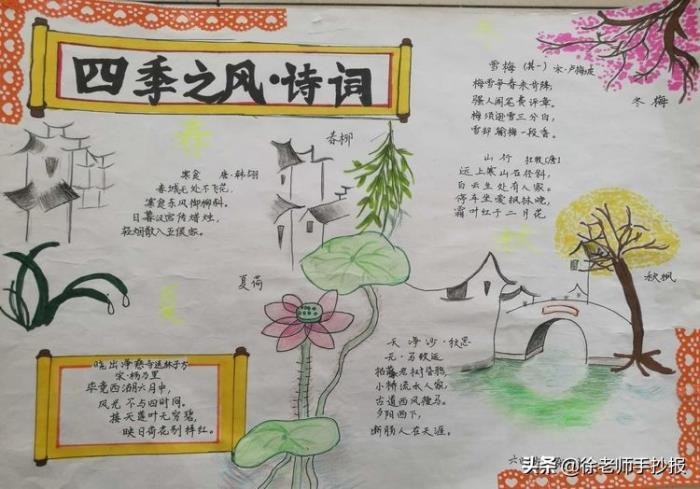 四季之风·诗词
春
寒食 唐·韩翃
春城无处不飞花,
寒食东风御柳斜。
日暮汉宫传蜡烛,
轻烟散入五侯家。
春柳
夏
夏荷
晓出净慈寺送林子方
宋·杨万里
毕竟西湖六月中,
风光不与四时同。
接天莲叶无穷碧,
映日荷花别样红。
冬
雪梅(其一) 宋·卢梅坡
梅雪争春未肯降,
骚人阁笔费评章。
梅须逊雪三分白,
雪却输梅一段香。
冬梅
山行 杜牧(唐)
远上寒山石径斜,
白云生处有人家。
停车坐爱枫林晚,
霜叶红于二月花
秋
秋枫
天净沙·秋思
元·马致远
枯藤老树昏鸦,
小桥流水人家,
古道西风瘦马。
夕阳西下,
断肠人在天涯。
头条 @徐老师手抄报